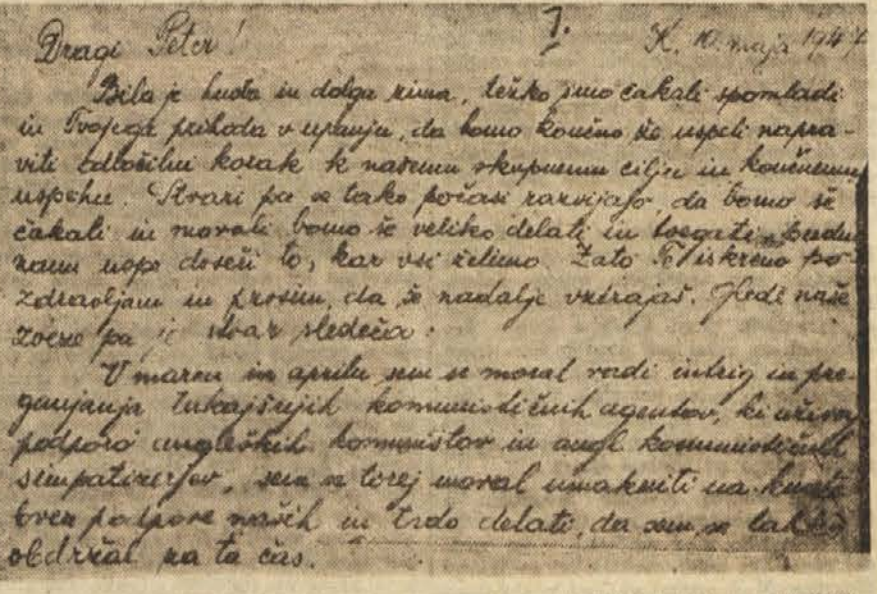 1.
Dragi Peter! K. 10. maja 1947
Bila je huda in dolga zima, težko smo čakali spomladi
in Tvojega prihoda v upanju, da bomo končno še uspeli napra-
viti odločilni korak k našemu skupnemu cilju in končnemu
uspehu. Stvari pa se tako počasi razvijajo, da bomo še
čakali in morali bomo še veliko delati in tvegati, predno
nam uspe doseči to, kar vsi želimo. Zato Te iskreno po-
zdravljam in prosim, da še nadalje vztrajaš. Gledi naše
zveze pa je stvar sledeča:
V marcu in aprilu sem se moral radi intrig in pre-
ganjanja tukajšnjih komunističnih agentov, ki uživajo
podporo angleških komunistov in angl. komunističnih
simpatizerjev, sem se torej moral umakniti na
brez podpore naših in trdo delati, da sem se tako
obdržal za ta čas.